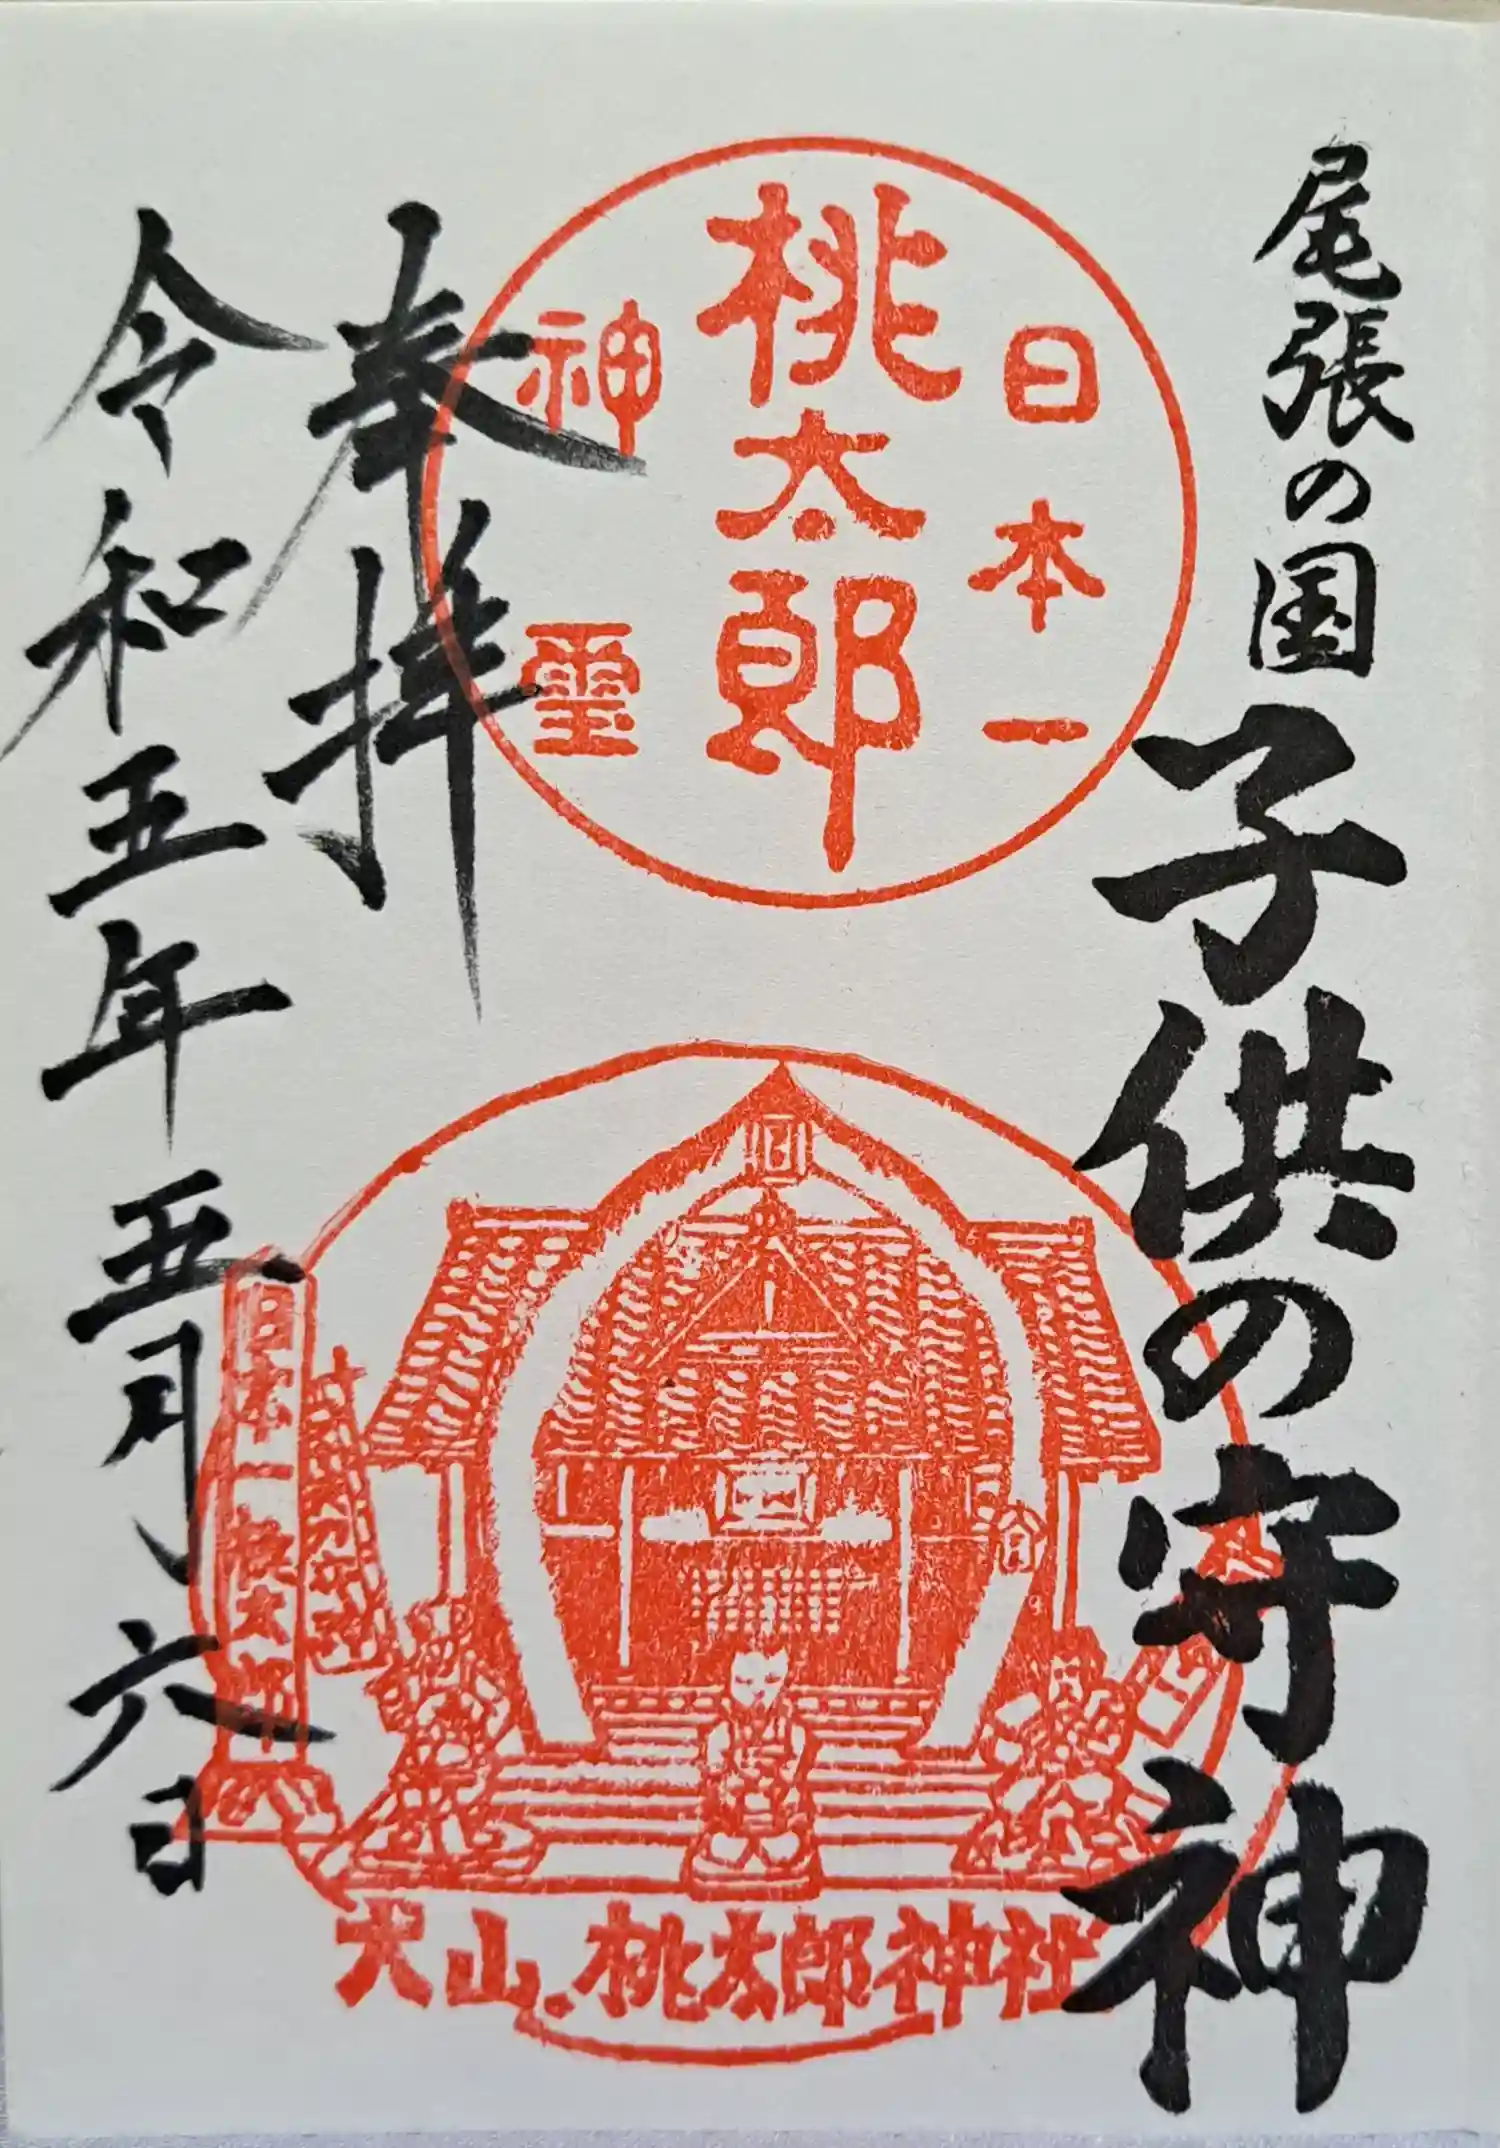 尾張の国
子供の守神
日本一
桃太郎
神璽
奉拝
令和五年五月六日
日本一桃太郎
犬山.桃太郎神社